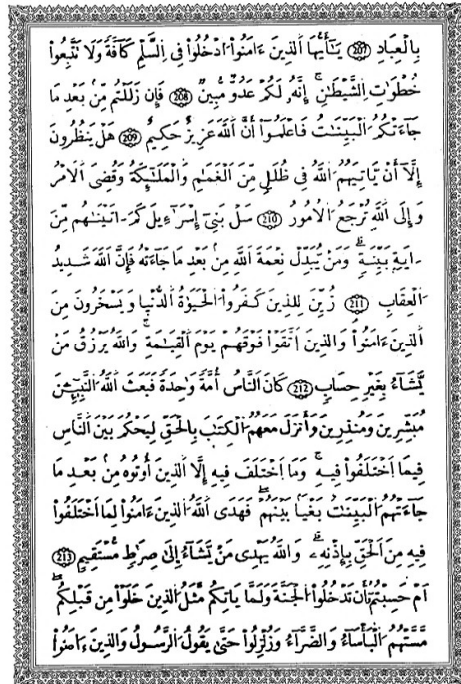 بِالْعِبَادِ 207 يَٰٓأَيُّهَا اَ۬لذِينَ ءَامَنُواْ اُ۟دْخُلُواْ فِے اِ۬لسَّلْمِ كَآفَّةً وَلَا تَتَّبِعُواْ
خُطُوَٰتِ اِ۬لشَّيْطَٰنِ إِنَّهُۥ لَكُمْ عَدُوٌّ مُّبِينٌ 208 فَإِن زَلَلْتُم مِّنۢ بَعْدِ مَا
جَآءَتْكُمُ اُ۬لْبَيِّنَٰتُ فَاعْلَمُوٓاْ أَنَّ اَ۬للَّهَ عَزِيزٌ حَكِيمٌ 209 هَلْ يَنظُرُونَ
إِلَّآ أَنْ يَّاتِيَهُمُ اُ۬للَّهُ فِے ظُلَلٍ مِّنَ اَ۬لْغَمَٰمِ وَالْمَلَٰٓئِكَةُ وَقُضِيَ اَ۬لَامْرُ
وَإِلَى اَ۬للَّهِ تُرْجَعُ اُ۬لُامُورُ 210 سَلْ بَنِےٓ إِسْرَآءِيلَ كَمَ اٰتَيْنَٰهُم مِّنَ
اٰيَةٍۢ بَيِّنَةٍ وَمَنْ يُّبَدِّلْ نِعْمَةَ اَ۬للَّهِ مِنۢ بَعْدِ مَا جَآءَتْهُ فَإِنَّ اَ۬للَّهَ شَدِيدُ
اُ۬لْعِقَابِ 211 زُيِّنَ لِلذِينَ كَفَرُواْ اُ۬لْحَيَوٰةُ اُ۬لدُّنْيَا وَيَسْخَرُونَ مِنَ
اَ۬لذِينَ ءَامَنُواْ وَالذِينَ اَ۪تَّقَواْ فَوْقَهُمْ يَوْمَ اَ۬لْقِيَٰمَةِ وَاللَّهُ يَرْزُقُ مَنْ
يَّشَآءُ بِغَيْرِ حِسَابٍ 212 كَانَ اَ۬لنَّاسُ أُمَّةً وَٰحِدَةً فَبَعَثَ اَ۬للَّهُ اُ۬لنَّبِيٓـِٕينَ
مُبَشِّرِينَ وَمُنذِرِينَ وَأَنزَلَ مَعَهُمُ اُ۬لْكِتَٰبَ بِالْحَقِّ لِيَحْكُمَ بَيْنَ اَ۬لنَّاسِ
فِيمَا اَ۪خْتَلَفُواْ فِيهِ وَمَا اَ۪خْتَلَفَ فِيهِ إِلَّا اَ۬لذِينَ أُوتُوهُ مِنۢ بَعْدِ مَا
جَآءَتْهُمُ اُ۬لْبَيِّنَٰتُ بَغْياً بَيْنَهُمْ فَهَدَى اَ۬للَّهُ اُ۬لذِينَ ءَامَنُواْ لِمَا اَ۪خْتَلَفُواْ
فِيهِ مِنَ اَ۬لْحَقِّ بِإِذْنِهِۦ وَاللَّهُ يَهْدِے مَنْ يَّشَآءُ إِلَىٰ صِرَٰطٍ مُّسْتَقِيمٍ 213
اَمْ حَسِبْتُمُۥٓ أَن تَدْخُلُواْ اُ۬لْجَنَّةَ وَلَمَّا يَاتِكُم مَّثَلُ اُ۬لذِينَ خَلَوْاْ مِن قَبْلِكُم
مَّسَّتْهُمُ اُ۬لْبَأْسَآءُ وَالضَّرَّآءُ وَزُلْزِلُواْ حَتَّىٰ يَقُولُ اُ۬لرَّسُولُ وَالذِينَ ءَامَنُواْ